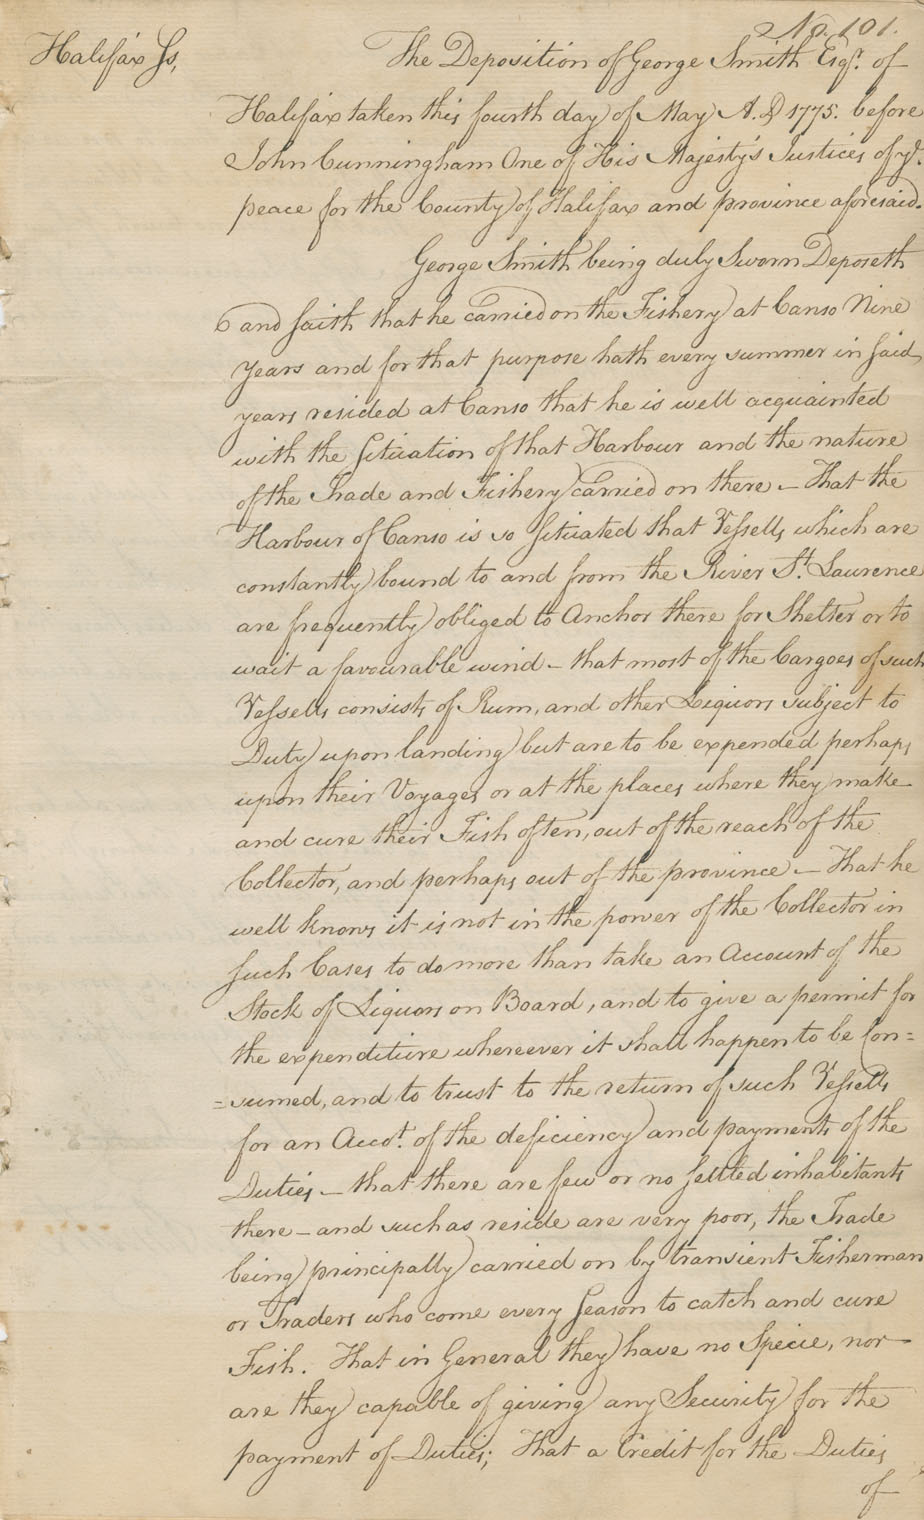 No. 101.
Halifax Ss, The Deposition of George Smith Esqr. of
Halifax taken this fourth day of May A.D 1775. before
John Cunningham One of His Majesty's Justices of ye.
peace for the County of Halifax and province aforesaid.
George Smith being duly Sworn Deposeth
and saith that he carried on the Fishery at Canso Nine
years and for that purpose hath every summer in said
years resided at Canso that he is well acquainted
with the Situation of that Harbour and the nature
of the Trade and Fishery carried on there - That the
Harbour of Canso is so Situated that Vessells which are
constantly bound to and from the River St. Laurence
are frequently obliged to Anchor there for Shelter or to
wait a favourable wind - that most of the Cargoes of such
Vessells consists of Rum, and other Liquors subject to
Duty upon landing but are to be expended perhaps
upon their Voyages or at the places where they make
and cure their Fish often, out of the reach of the
Collector, and perhaps out of the province - That he
well knows it is not in the power of the Collector in
such Cases to do more than take an Account of the
Stock of Liquors on Board, and to give a permit for
the expenditure whereever it shall happen to be Con=
=sumed, and to trust to the return of such Vessells
for an Accot. of the deficiency and payments of the
Duties - that there are few or no settled inhabitants
there - and such as reside are very poor, the Trade
being principally carried on by transient Fisherman
or Traders who come every Season to catch and cure
Fish. That in General they have no Specie, nor
are they capable of giving any Security for the
payment of Duties; That a Credit for the Duties
of